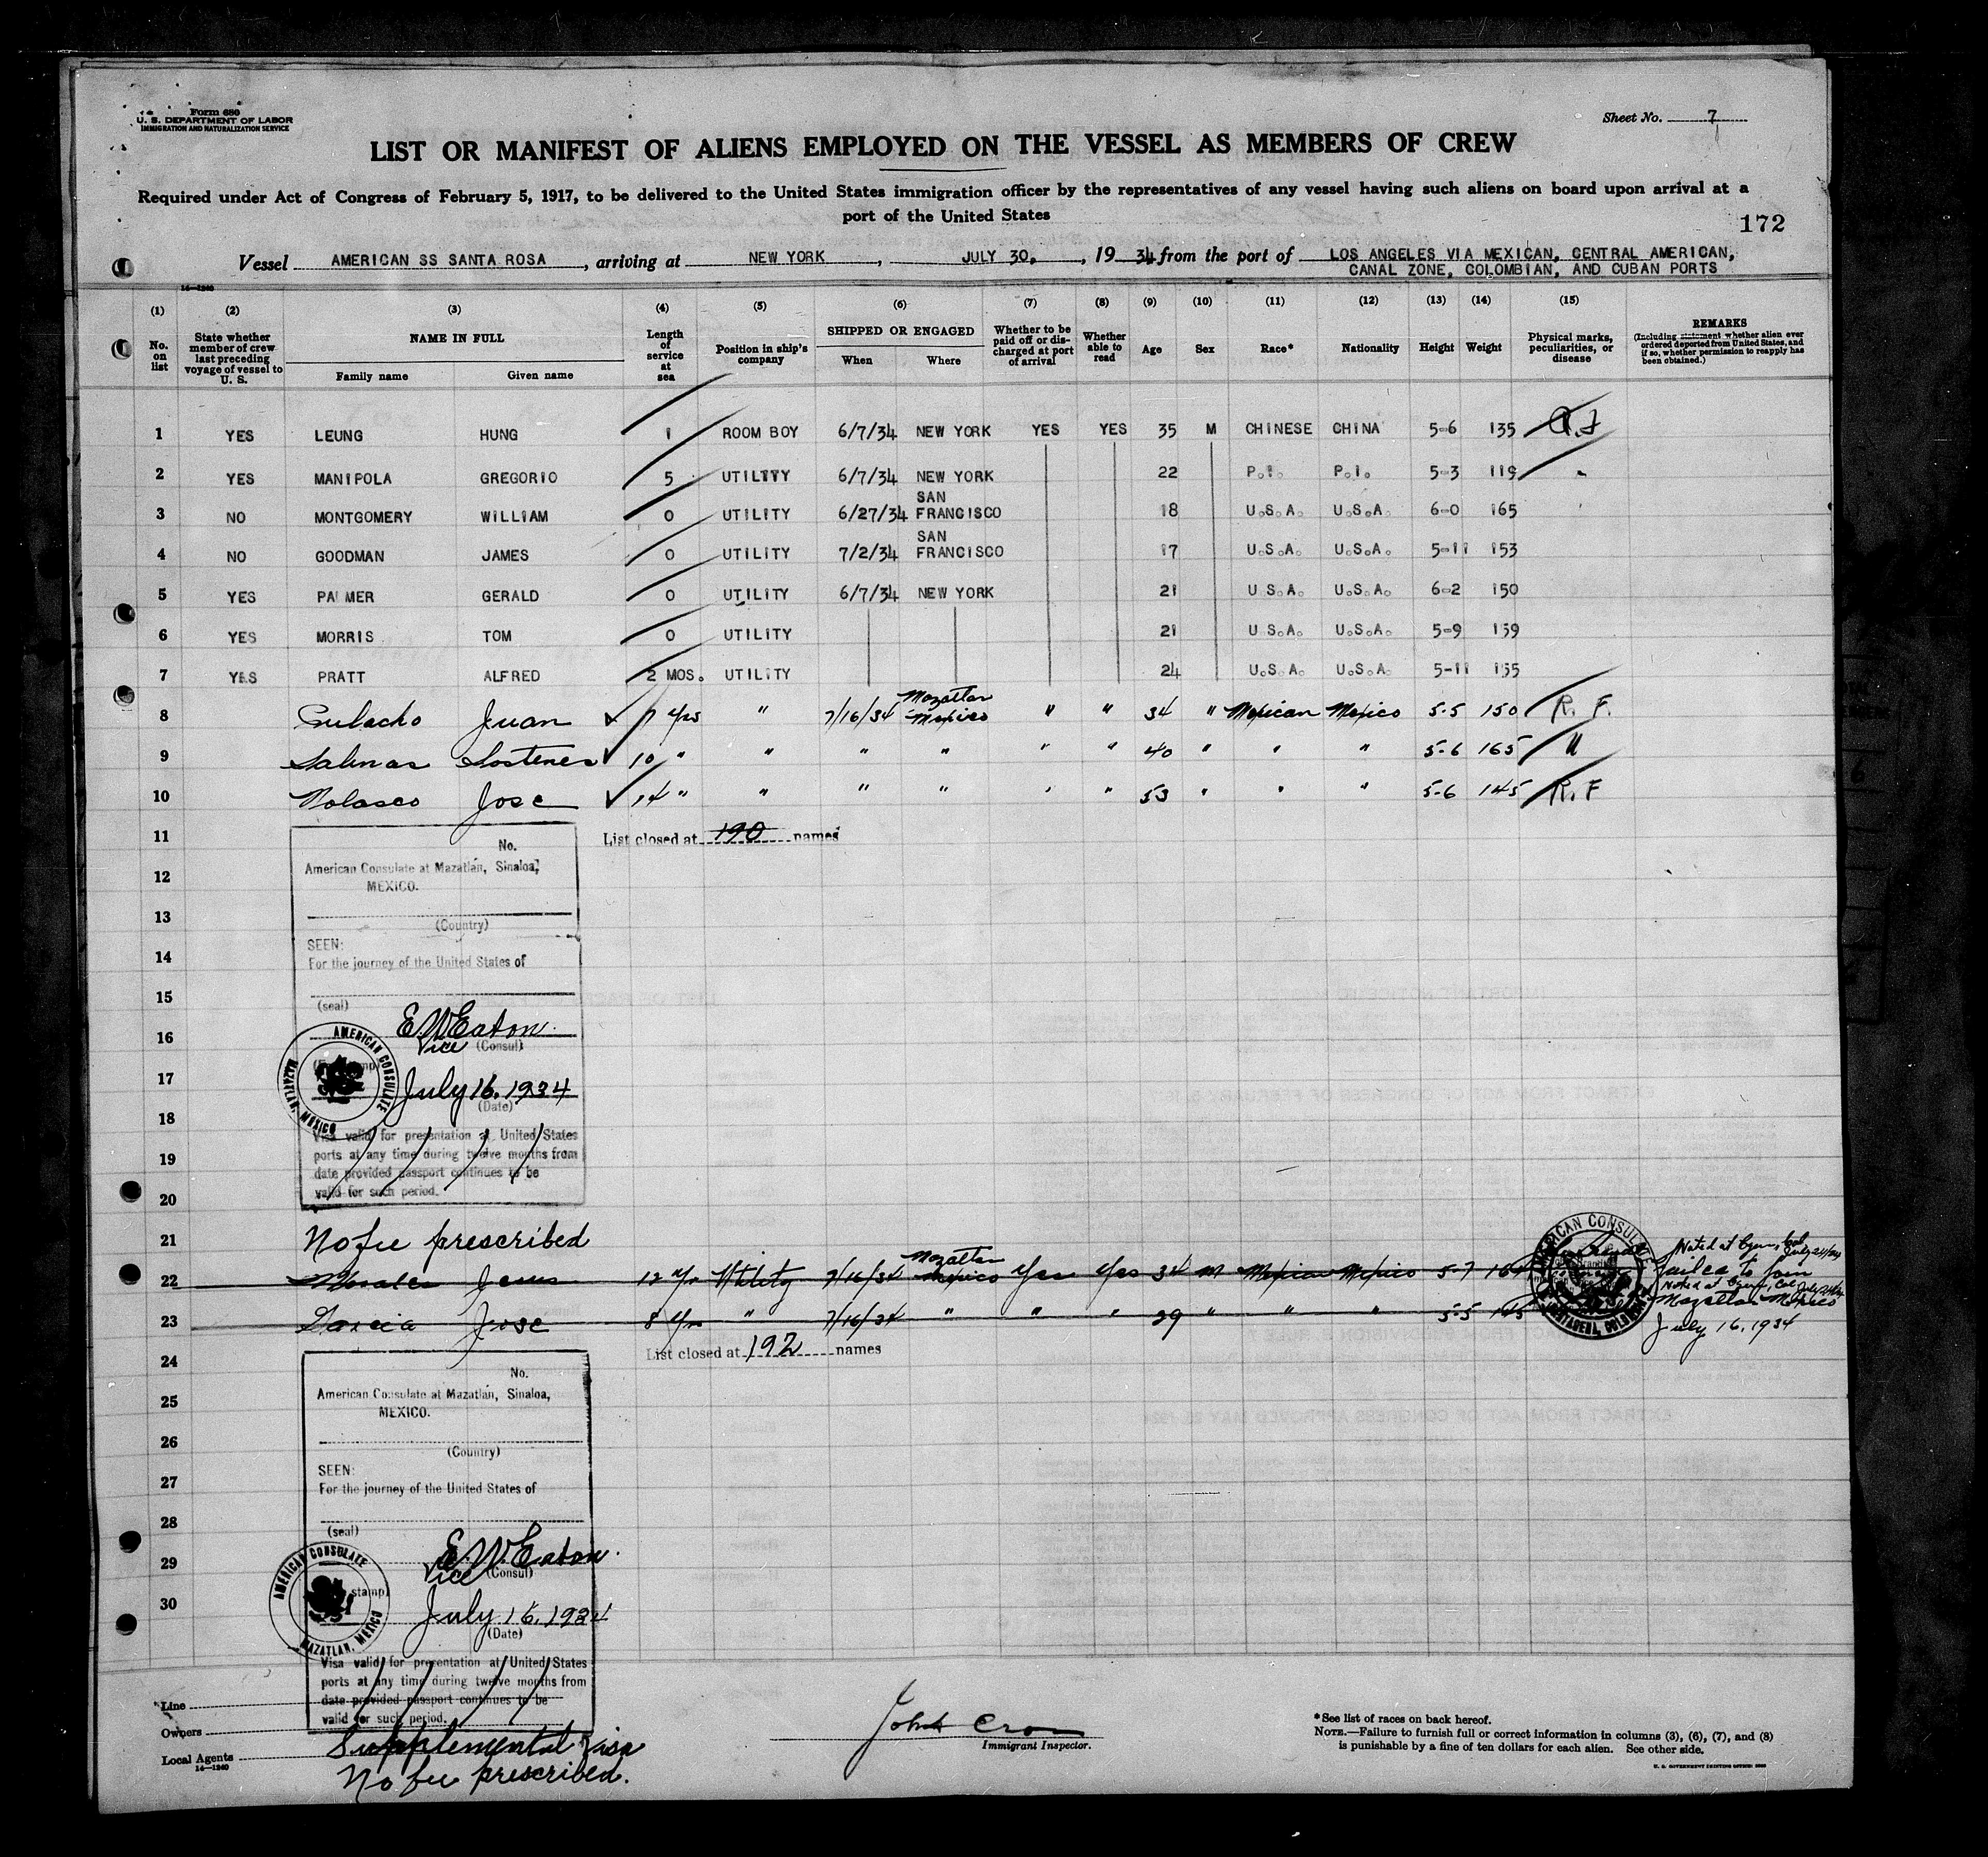 Form 680
U. S. DEPARTMENT OF LABOR
IMMIGRATION AND NATURALIZATION SERVICE
Sheet No. 7
LIST OR MANIFEST OF ALIENS EMPLOYED ON THE VESSEL AS MEMBERS OF CREW
Required under Act of Congress of February 5, 1917, to be delivered to the United States immigration officer by the representatives of any vessel having such aliens on board upon arrival at a
port of the United States
172
Vessel AMERICAN SS SANTA ROSA, arriving at NEW YORK, JULY 30, 1934 from the port of LOS ANGELES VIA MEXICAN, CENTRAL AMERICAN,
CANAL ZONE, COLOMBIAN, AND CUBAN PORTS
14—1240
(1) (2) (3) (4) (5) (6) (7) (8) (9) (10) (11) (12) (13) (14) (15)
No. on list
State whether member of crew last preceding voyage of vessel to U. S.
NAME IN FULL
Family name Given name
Length of service at sea
Position in ship's company
SHIPPED OR ENGAGED
When Where
Whether to be paid off or discharged at port of arrival
Whether able to read
Age Sex Race* Nationality Height Weight
Physical marks, peculiarities, or disease
REMARKS
(Including statement whether alien ever ordered deported from United States, and if so, whether permission to reapply has been obtained.)
1 YES LEUNG HUNG 1 ROOM BOY 6/7/34 NEW YORK YES YES 35 M CHINESE CHINA 5-6 135
2 YES MANIPOLA GREGORIO 5 UTILITY 6/7/34 NEW YORK 22 P.I. P.I. 5-3 119
3 NO MONTGOMERY WILLIAM 0 UTILITY 6/27/34 SAN FRANCISCO 18 U.S.A. U.S.A. 6-0 165
4 NO GOODMAN JAMES 0 UTILITY 7/2/34 SAN FRANCISCO 17 U.S.A. U.S.A. 5-11 153
5 YES PALMER GERALD 0 UTILITY 6/7/34 NEW YORK 21 U.S.A. U.S.A. 6-2 150
6 YES MORRIS TOM 0 UTILITY 21 U.S.A. U.S.A. 5-9 159
7 YES PRATT ALFRED 2 MOS. UTILITY 24 U.S.A. U.S.A. 5-11 155
8 Juan 7 yrs " 7/16/34 Mazatlan Mexico " " 34 " Mexican Mexico 5-5 150 R. F.
9 Salinas Sostenes 10 " " " " " " 40 " " " 5-6 165 "
10 Nolasco Jose 14 " " " " " " 53 " " " 5-6 145 R. F
11 List closed at 190 names
12
13
14
15
16
17
18
19
20
No.
American Consulate at Mazatlán, Sinaloa,
MEXICO.
(Country)
SEEN:
For the journey of the United States of
(seal)
E. W. Eaton
Vice (Consul)
AMERICAN CONSULATE MAZATLAN, MEXICO
July 16, 1934
(Date)
Visa valid for presentation at United States
ports at any time during twelve months from
date provided passport continues to be
valid for such period.
21 No fee prescribed
22 Morales Jesus 12 yr Utility 7/16/34 Mazatlan Mexico Yes Yes 34 M Mexican Mexico 5-7
23 Garcia Jose 8 yr " 7/16/34 " " " 29 " " " 5-5 145
AMERICAN CONSULATE CARTAGENA, COLOMBIA
Failed to join
Mazatlan Mexico
July 16, 1934
24 List closed at 192 names
25
26
27
28
29
30
No.
American Consulate at Mazatlán, Sinaloa,
MEXICO.
(Country)
SEEN:
For the journey of the United States of
(seal)
E. W. Eaton
Vice (Consul)
AMERICAN CONSULATE MAZATLAN, MEXICO
stamp)
July 16, 1934
(Date)
Visa valid for presentation at United States
ports at any time during twelve months from
date provided passport continues to be
valid for such period.
Supplemental Visa
No fee prescribed.
Line
Owners
Local Agents
14—1240
John
Immigrant Inspector.
*See list of races on back hereof.
NOTE.—Failure to furnish full or correct information in columns (3), (6), (7), and (8)
is punishable by a fine of ten dollars for each alien. See other side.